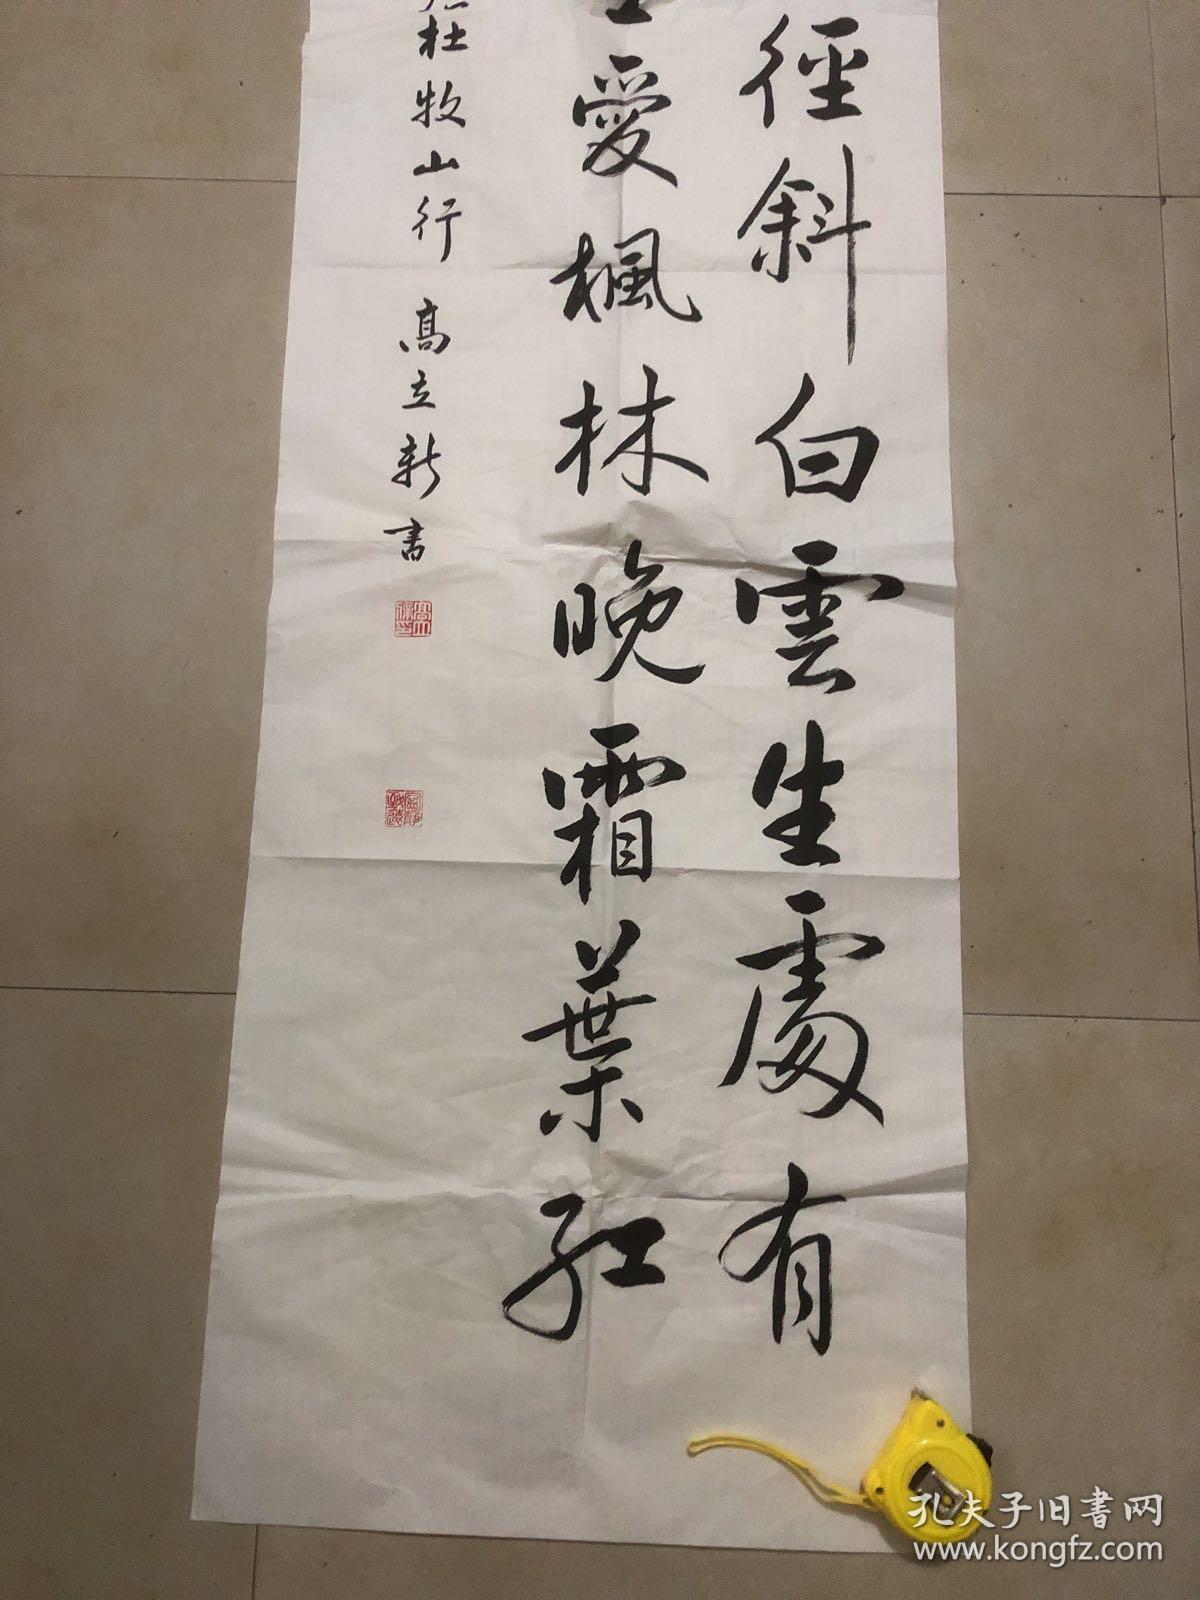 徑斜白雲生處有
愛楓林晚霜葉紅
杜牧山行 高立新書
孔夫子旧书网
www.kongfz.com